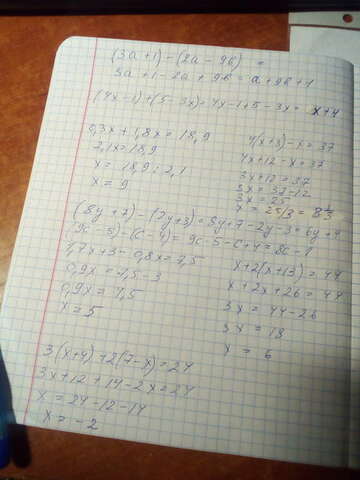 (3a+1)-(2a-9b) =
3a+1-2a+9b = a+9b+1
(4x-1)+(5-3x)=4x-1+5-3x= x+4
0,3x+1,8x=18,9
2,1x=18,9
x= 18,9:2,1
x = 9
4(x+3)-x=37
4x+12-x=37
3x+12=37
3x=37-12
3x=25
x = 25/3 = 8 1/3
(8y+7)-(2y+3)=8y+7-2y-3=6y+4
(9c-5)-(c-4)=9c-5-c+4=8c-1
1,7x+3-0,8x=7,5
0,9x=7,5-3
0,9x=4,5
x=5
x+2(x+13)=44
x+2x+26=44
3x=44-26
3x=18
x = 6
3(x+4)+2(7-x)=24
3x+12+14-2x=24
x = 24-12-14
x = -2